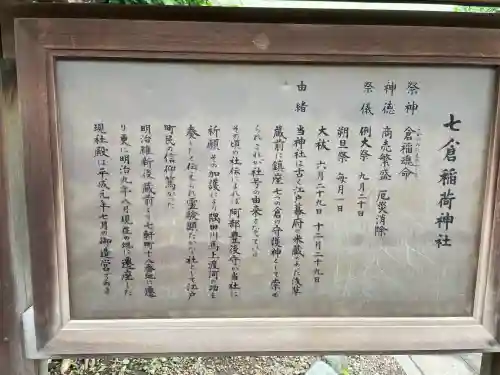 七倉稲荷神社
祭神　倉稲魂命
神徳　商売繁盛　厄災消除
祭儀　例大祭　九月二十日
朔旦祭　毎月一日
大祓　六月二十九日　十二月二十九日
由緒　当神社は古く江戸幕府の米蔵であった浅草
蔵前に鎮座七つの倉の守護神として崇め
られこれが社号の由来となっている
その頃の社伝によれば阿部豊後守が当社に
祈願しその加護により隅田川馬上渡河の功を
奏したと伝えられ霊験顕たかな社として江戸
町民の信仰篤かった
明治維新後蔵前より七軒町十八番地に遷
り更に明治九年八月現在の地に遷座した
現社殿は平成元年七月の御造営である